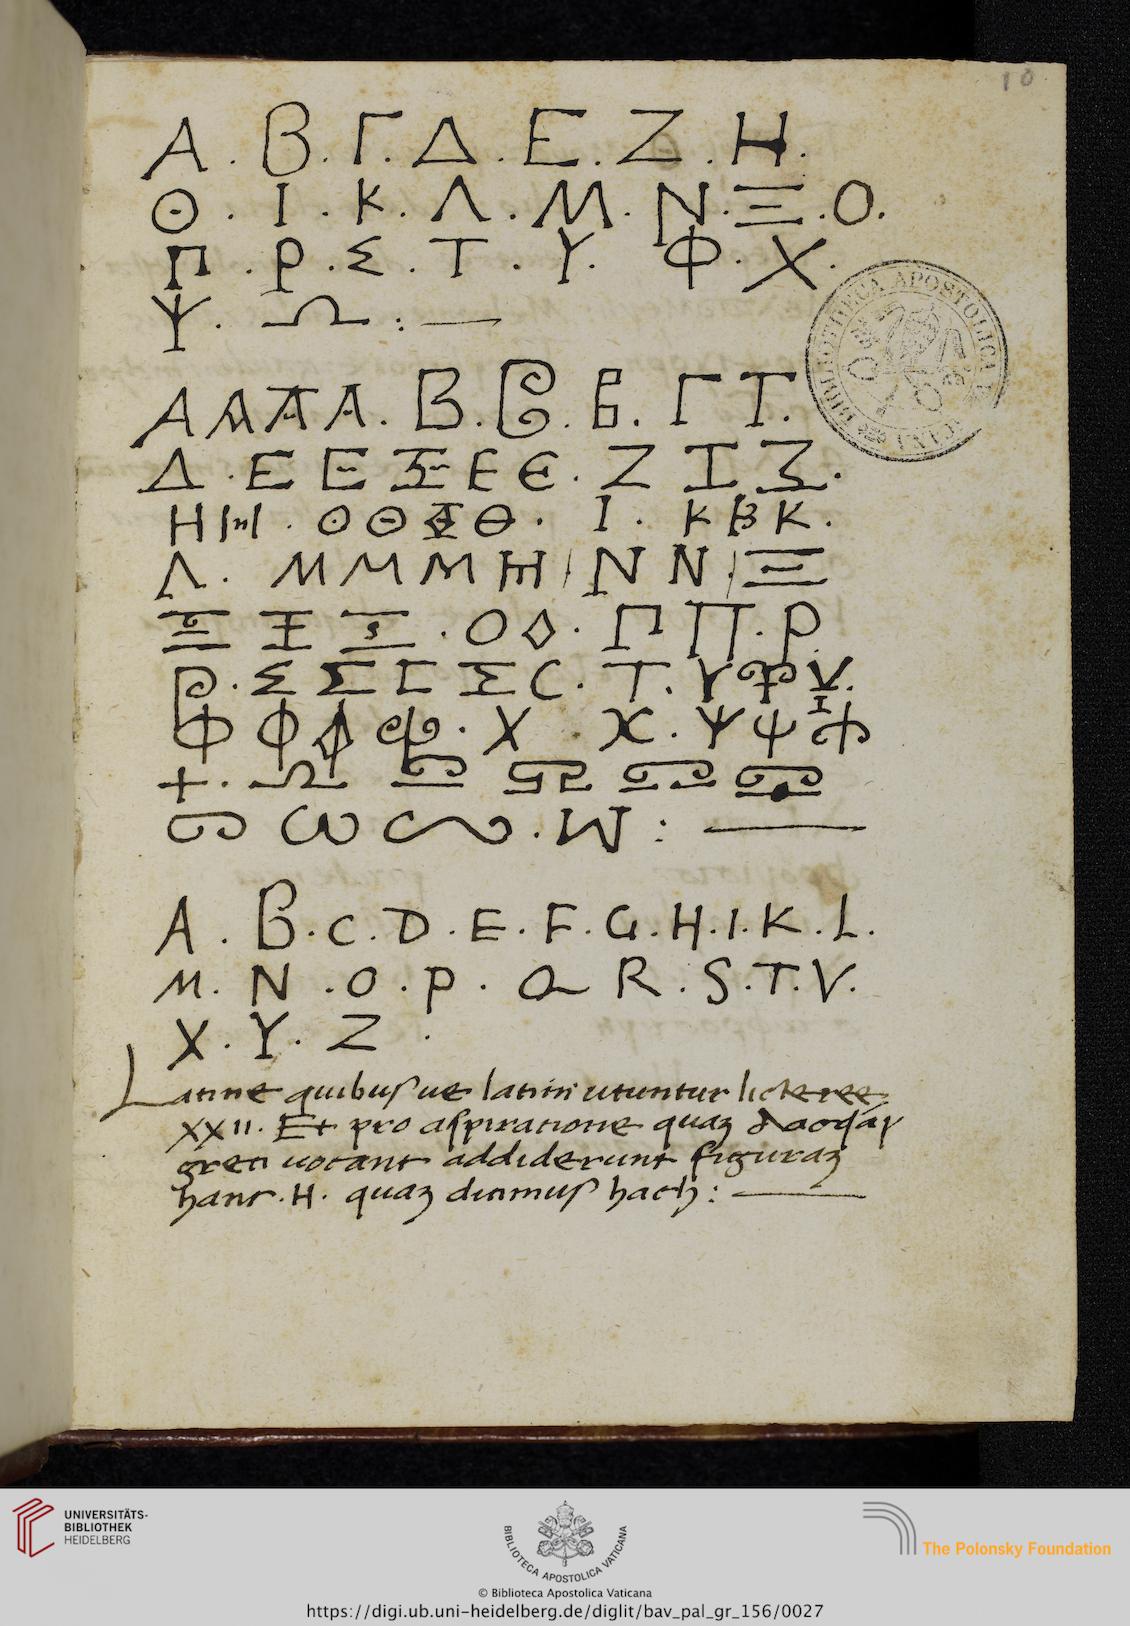 10
Α . Β . Γ . Δ . Ε . Ζ . Η .
Θ . Ι . Κ . Λ . Μ . Ν . Ξ . Ο .
Π . Ρ . Σ . Τ . Υ . Φ . Χ .
Ψ . Ω : —
Α Α Α Α . Β . Β . Β . Γ Γ .
Δ . Ε Ε Ξ Ε Є . Ζ Ζ Ζ .
Η Η . Θ Θ Θ Θ . Ι . Κ Κ Κ .
Λ . Μ Μ Μ Μ / Ν Ν / Ξ
Ξ Ξ Ξ . Ο Ο . Π Π . Ρ
Ρ . Σ Σ Σ Σ C . Τ . Υ Υ Υ .
Φ Φ Φ Φ . Χ Χ . Ψ Ψ Ψ
+ . Ω Ω Ω Ω Ω
Ω Ѡ Ω . Ω : —
A . B . C . D . E . F . G . H . I . K . L .
M . N . O . P . Q R . S . T . V .
X . Y . Z .
Latine quibusue latini utuntur lictere
XXII . Et pro aspiratione quaʒ
greci uocant addiderunt figuraʒ
hanc . H . quaʒ dicimus hach : —
BIBLIOTHECA APOSTOLICA VATICANA
UNIVERSITÄTS-
BIBLIOTHEK
HEIDELBERG
BIBLIOTECA APOSTOLICA VATICANA
The Polonsky Foundation
© Biblioteca Apostolica Vaticana
https://digi.ub.uni-heidelberg.de/diglit/bav_pal_gr_156/0027